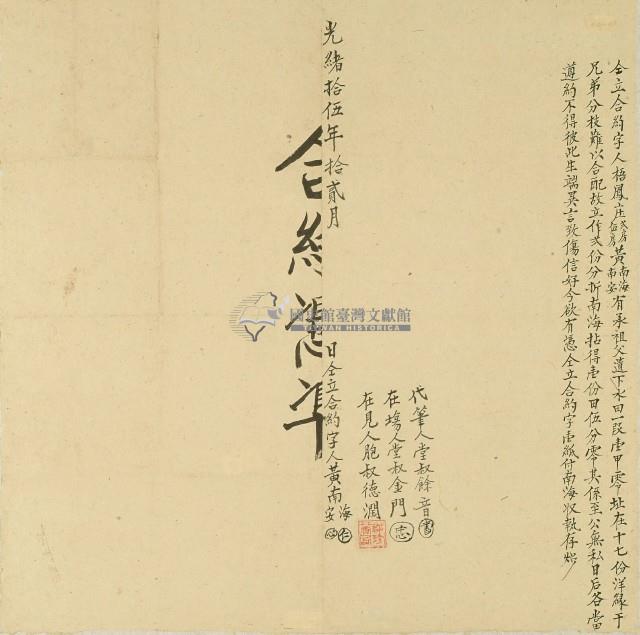 仝立合約字人梧鳳庄弍房五房黃南海南安有承祖父遺下水田一段壹甲零址在十七份洋緣于
兄弟分枝難以合配故立作弍份分折南海拈得壹份田伍分零其係至公無私日后各當
遵約不得彼此生端異言致傷信好今欲有憑仝立合約字壹紙付南海收執存炤
代筆人堂叔餘音
在塲人堂叔金門 忘
在見人胞叔德潤
光緒拾伍年拾貳月 日仝立合約字人黃南海安
合約憑準
國史館臺灣文獻館
TAIWAN HISTORICA